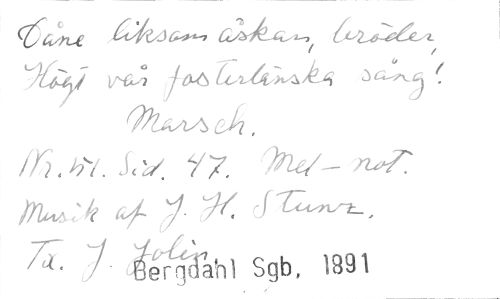 Dåne liksom åskan, bröder,
Högt vår fosterlänska sång!
Marsch.
Nr. 51. Sid. 47. Mel-not.
Musik af J. H. Stunz.
Tx. J. Jolin
Bergdahl Sgb, 1891